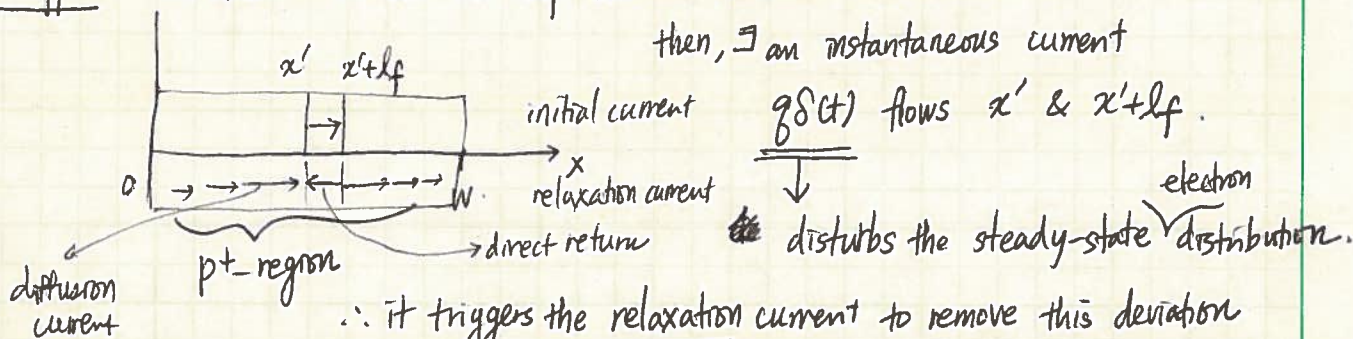 then, ∃ an instantaneous current
x' x'+lf
initial current qδ(t) flows x' & x'+lf.
x
0 W. relaxation current
electron
direct return disturbs the steady-state distribution.
p+-region
diffusion
current
∴ it triggers the relaxation current to remove this deviation